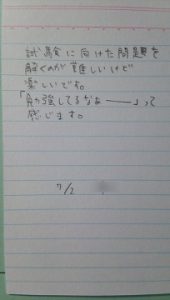 試験に向けた問題を
解くのが難しいけど
楽しいです。
「勉強してるなぁー」って
感じます。
7/2